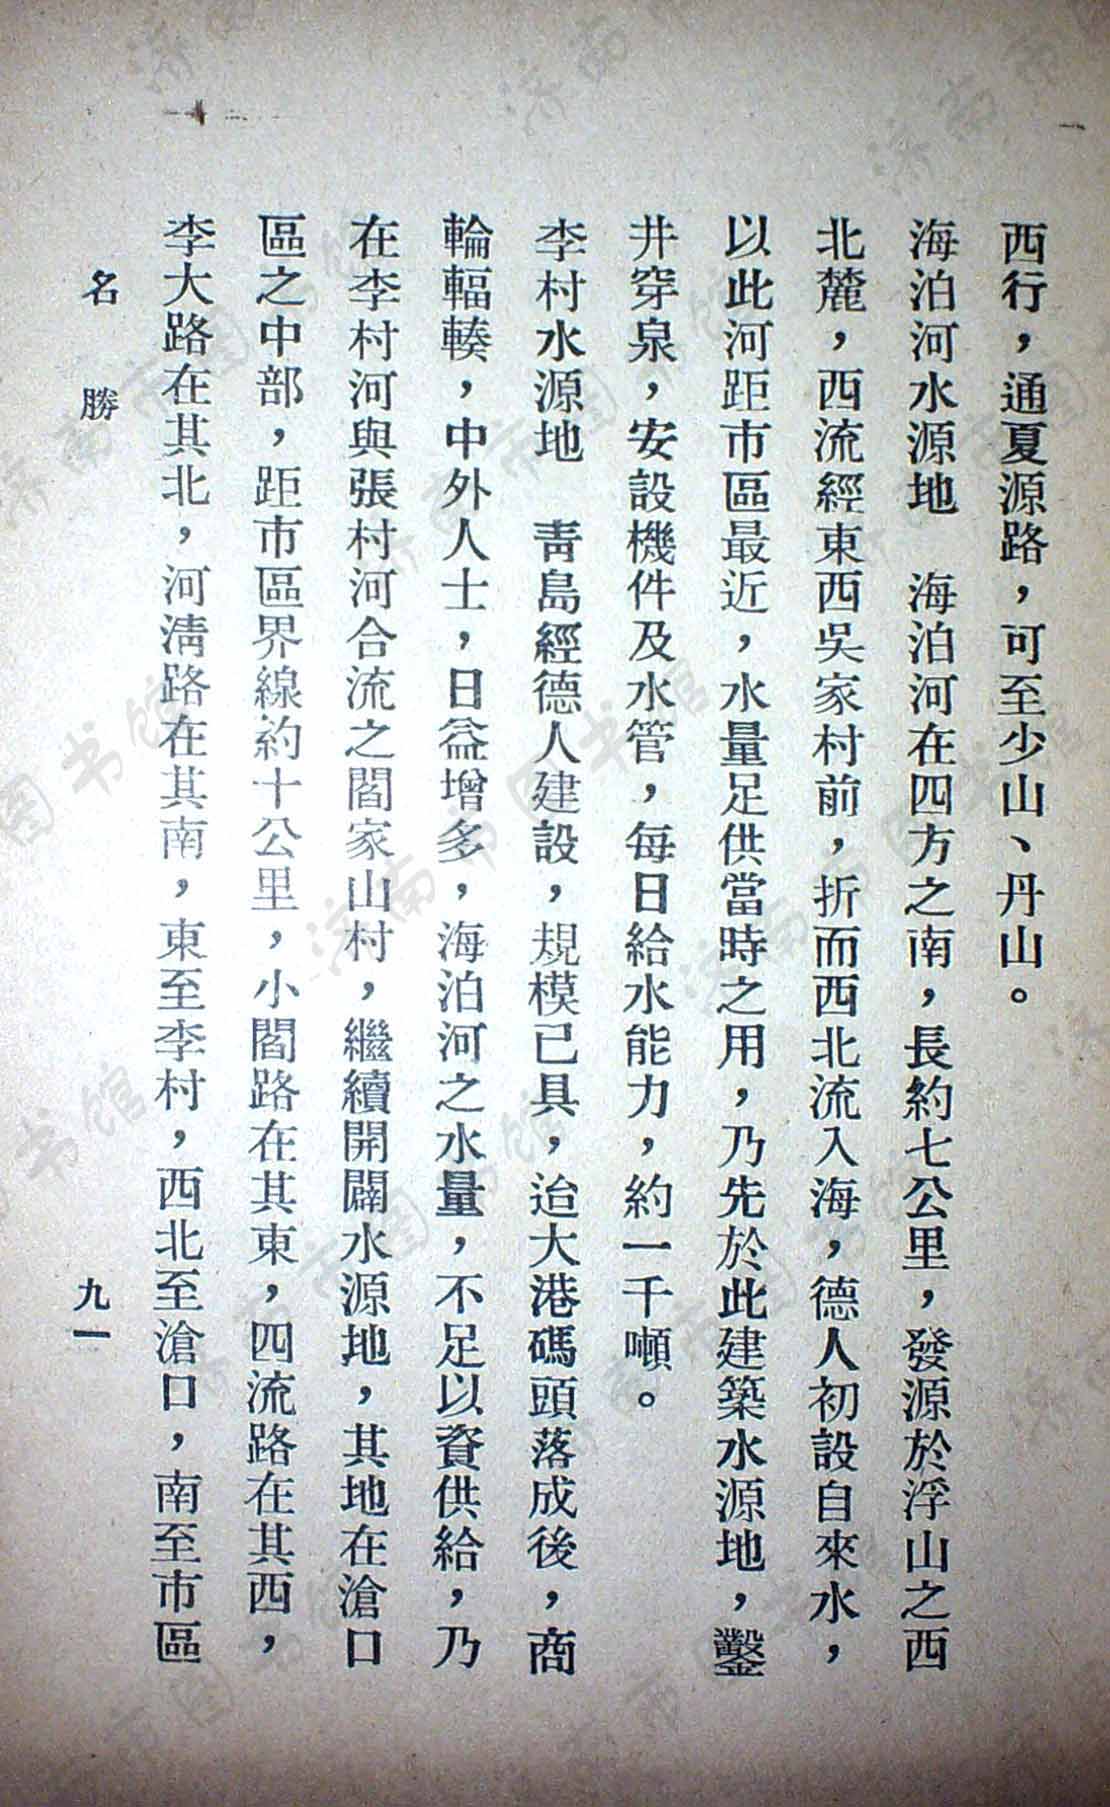 西行，通夏源路，可至少山、丹山。
海泊河水源地　海泊河在四方之南，長約七公里，發源於浮山之西
北麓，西流經東西吳家村前，折而西北流入海，德人初設自來水，
以此河距市區最近，水量足供當時之用，乃先於此建築水源地，鑿
井穿泉，安設機件及水管，每日給水能力，約一千噸。
李村水源地　青島經德人建設，規模已具，迨大港碼頭落成後，商
輪輻輳，中外人士，日益增多，海泊河之水量，不足以資供給，乃
在李村河與張村河合流之閻家山村，繼續開闢水源地，其地在滄口
區之中部，距市區界線約十公里，小閻路在其東，四流路在其西，
李大路在其北，河清路在其南，東至李村，西北至滄口，南至市區
名　勝
九一
济南市图书馆